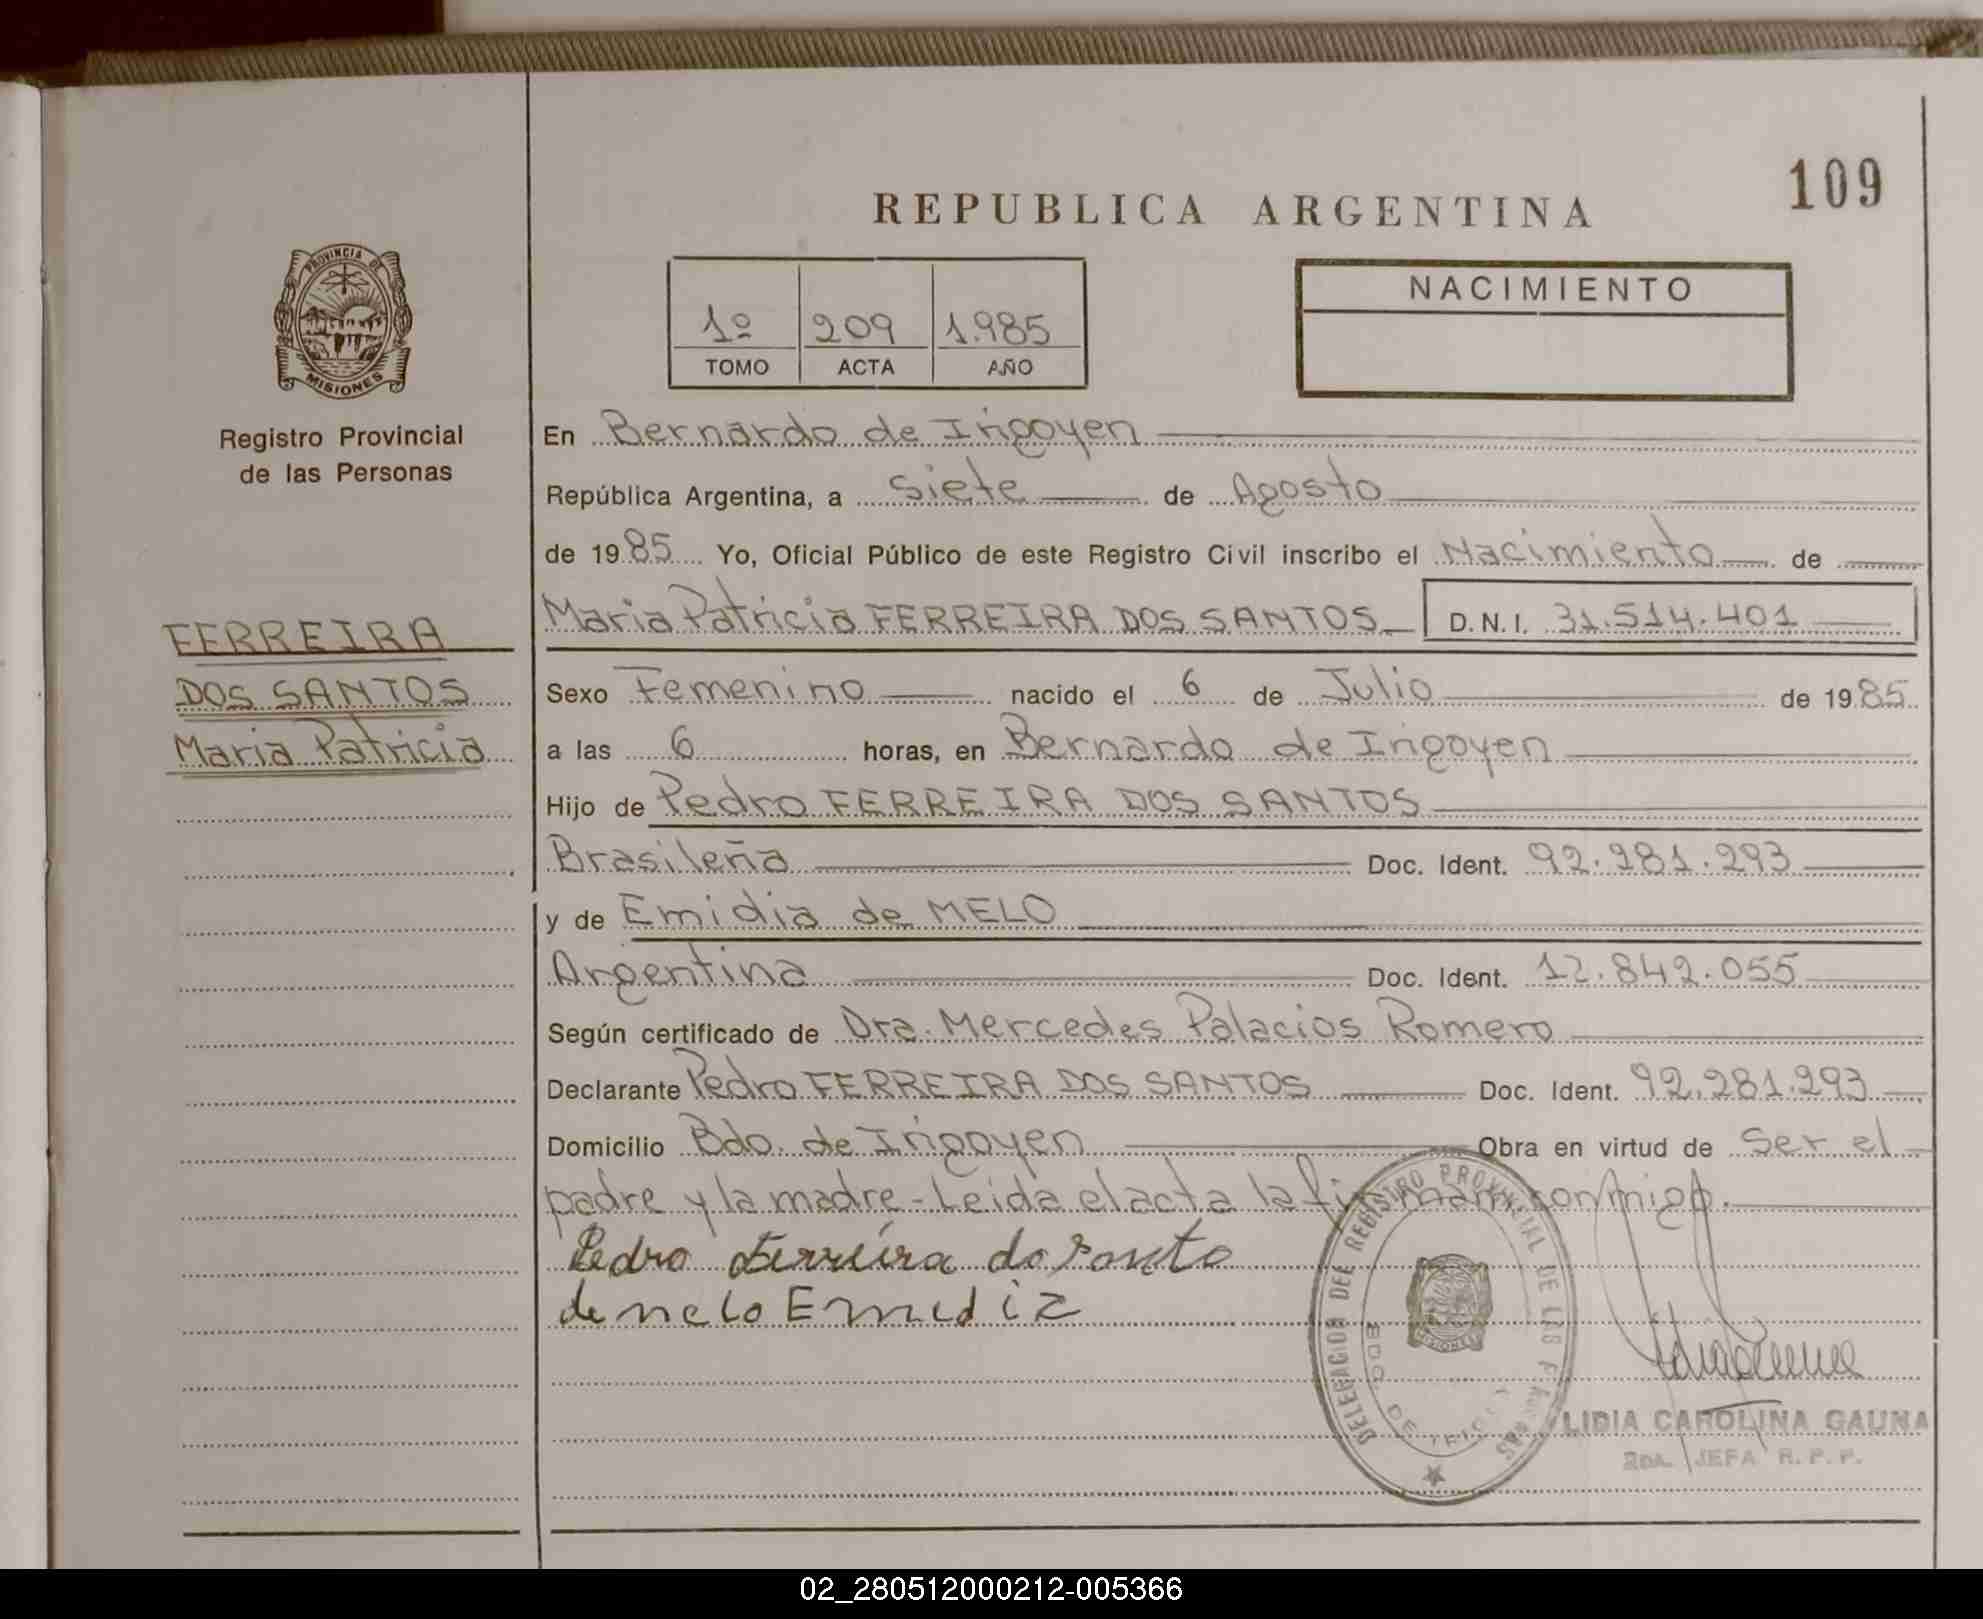 109
REPUBLICA ARGENTINA
PROVINCIA DE
MISIONES
Registro Provincial
de las Personas
1º 209 1.985
TOMO ACTA AÑO
NACIMIENTO
En Bernardo de Irigoyen
República Argentina, a siete de Agosto
de 1985 Yo, Oficial Público de este Registro Civil inscribo el Nacimiento de
Maria Patricia FERREIRA DOS SANTOS D.N.I. 31.514.401
FERREIRA
DOS SANTOS
Maria Patricia
Sexo Femenino nacido el 6 de Julio de 1985
a las 6 horas, en Bernardo de Irigoyen
Hijo de Pedro FERREIRA DOS SANTOS
Brasileña Doc. Ident. 92.281.293
y de Emidia de MELO
Argentina Doc. Ident. 12.842.055
Según certificado de Dra. Mercedes Palacios Romero
Declarante Pedro FERREIRA DOS SANTOS Doc. Ident. 92.281.293
Domicilio Bdo. de Irigoyen Obra en virtud de ser el
padre y la madre - Leida el acta la firman conmigo.
Pedro Ferreira do Santo
de melo Emidia
DELEGACION DEL REGISTRO PROVINCIAL DE LAS
BDO. DE
MISIONES
LIDIA CAROLINA GAUNA
2DA. JEFA R.P.P.
02_280512000212-005366